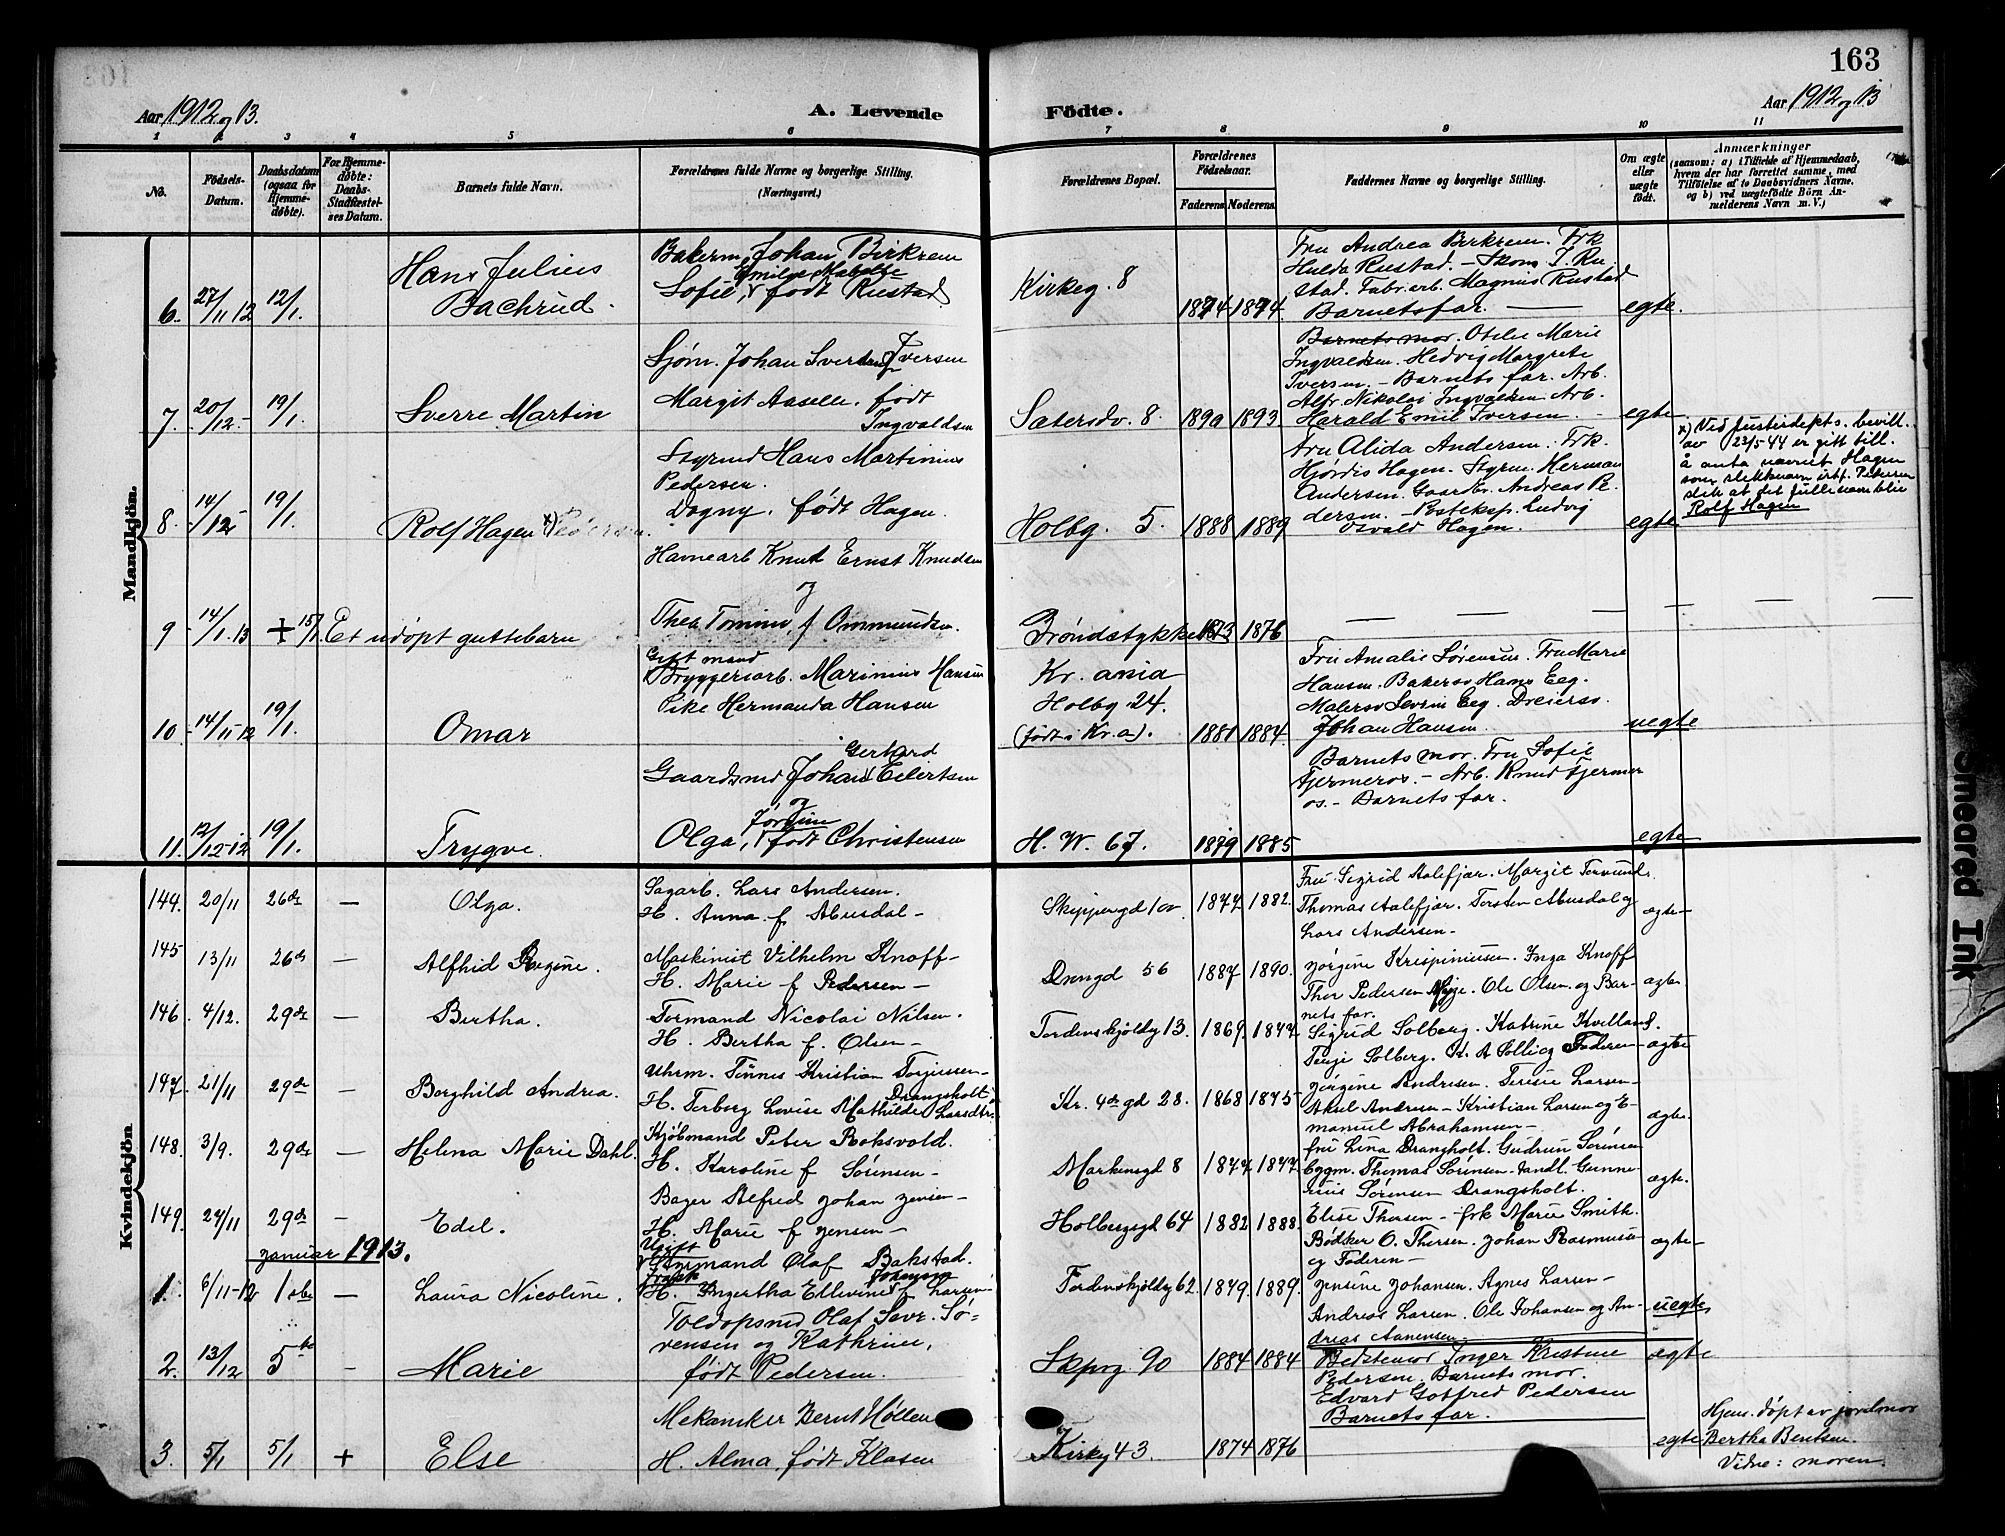 163
Aar 1912 og 13.
A. Levende
Födte.
Aar 1912 og 13
1 2 3 4 5 6 7 8 9 10 11
No.
Födsels-
Datum.
Daabsdatum
(ogsaa for
Hjemme-
döbte).
For Hjemme-
döbte:
Daabs-
Stadfæstel-
ses Datum.
Barnets fulde Navn.
Forældrenes fulde Navne og borgerlige Stilling.
(Næringsvei.)
Forældrenes Bopæl.
Forældrenes
Födselsaar.
Faderens. Moderens.
Faddernes Navne og borgerlige Stilling.
Om ægte
eller
uægte
födt.
Anmærkninger
(saasom: a) i Tilfælde af Hjemmedaab,
hvem der har forrettet samme, med
Tilföielse af to Daabsvidners Navne,
og b) ved uægtefödte Börn An-
melderens Navn m. V.)
Mandkjön.
6. 27/11 12 12/1.
Hans Julius
Bachrud.
Bakerm. Johan Birkrem
Emilie Mabelle
Sofie, født Rustad
Kirkeg. 8
1874 1874.
Fru Andrea Birkrem. Frk
Hulda Rustad. – Skom. T. Ru
stad. Fabr. arb. Magnus Rustad
Barnets far.
egte.
7. 20/12. 19/1.
Sverre Martin
Sjøm. Johan Sverdrup Iversen
Margit Aaselle. født
Ingvaldsen
Sætersdv. 8. 1890 1893.
Barnets mor. Otelie Marie
Ingvaldsen. Hedvig Margrete
Iversen. – Barnets far. Arb.
Alfr. Nikolai Ingvaldsen Arb.
Harald Emil Iversen.
egte
8. 14/12 19/1.
Rolf Hagen x) Pedersen.
Styrmd Hans Martinius
Pedersen.
Dagny, født Hagen.
Holbg. 5. 1888 1889
Fru Alida Andersen. Frk.
Hjørdis Hagen. Styrm. Herman
Andersen. Gaardbr. Andreas Pe
dersen. – Posteksp. Ludvig
Osvald Hagen.
egte
x) Ved justisdepts. bevill.
av 23/5-44 er gitt till.
å anta navnet Hagen
som slektsnavn istf. Pedersen
slik at det fulle navn blir
Rolf Hagen
9 14/1. 13 + 15/1. Et udøpt guttebarn
Havnearb Knut Ernst Knudsen
og
Thea Tomine, f Ommundsen.
Grøndstykket 1873 1876
10. 14/11-12 19/1.
Omar
Gift mand
Bryggeriarb. Marinius Hansen
Pike Hermanda Hansen
Kr. ania
Holbg. 24.
(født i Kr. a). 1881 1884.
Fru Amalie Sørensen. Fru Marie
Hansen. Bakersv Hans Eeg.
Malersv Severin Eeg. Dreiersv.
Johan Hansen.
uegte
11. 12/12-12 19/1.
Trygve.
Gerhard
Gaardsmd Johan Eilertsen
og
Jørgine
Olga, født Christensen
H. W. 67. 1879 1885.
Barnets mor. Fru Sofie
Fjermeros. – Arb. Knud Fjermer
os. – Barnets far.
egte
Kvindekjön
144. 20/11 26de —
Olga.
Sagarb. Lars Andersen.
H. Anna f Abusdal –
Skippergd 1 a. 1877 1882.
Fru Sigrid Aalefjær. Margit Tervund.
Thomas Aalefjær. Torsten Abusdal og
Lars Andersen –
ægte –
145 13/11 26de —
Alfhid Regine.
Maskinist Vilhelm Knoff –
H. Marie f Pedersen –
Drongd 56 1887 1890.
Jørgine Krispiniusen. Inga Knoff
Thor Pedersen Myge. Ole Olsen og Bar-
nets far.
ægte
146. 4/12. 29de —
Bertha.
Formand Nicolai Nilsen.
H. Bertha f. Olsen –
Tordenskjoldg 13. 1869. 1877.
Sigrid Solberg. Katrine Kvelland.
Terje Solberg. K. A Sollie og Faderen –
ægte
147. 21/11 29de —
Borghild Andrea.
Uhrm. Tønnes Kristian Torjussen –
Drangsholt
H. Torborg Lovise Mathilde Larsdtr.
Kr. 4des gd 28. 1868 1875
Jørgine Andresen. Terese Larsen –
Aksel Andresen – Kristian Larsen og E-
manuel Abrahamsen –
ægte.
148. 3/9. 29de —
Helena Marie Dahl.
Kjøbmand Peter Roksvold.
H. Karoline f Sørensen –
Markensgd 8 1877 1877
fru Lina Drangholt. Gudrun Sørensen
bygm. Thomas Sørensen. Handl. Gunne-
rius Sørensen Drangsholt.
ægte.
149. 27/11 29de —
Edel.
Bager Alfred Johan Jensen –
H. Marie f Jensen –
Holbergsgd 64 1882 1888.
Elise Thorsen – frk Marie Smith.
Bødker O. Thorsen. Johan Rasmusen
og Faderen –
ægte –
Januar 1913.
1. 6/11-12 1ste —
Laura Nicoline.
Ugift
Sømmand Olaf Bakstad.
Johanne
H. Ingertha Ellevine f Larsen
Tordenskjoldg 62. 1879. 1889.
Jensine Johansen. Agnes Larsen –
Andreas Larsen. Ole Johansen og An-
dreas Aanensen.
uegte
2. 13/12 5te –
Marie
Toldopsmd Olaf Sevr. Sø-
rensen og Kathrine,
født Pedersen.
Skprg 90 1884 1884
Bedstemor Inger Kristine
Pedersen. Barnets mor.
Edvard Gotfred Pedersen
Barnets far.
ægte
3. 5/1 5/1 +
Else
Mekaniker Bernt Møllen
H. Alma, født Klasen
Kirkg 43. 1874 1876
egte
Hjem. døpt av jordmor
Bertha Bentsen.
Vidne: moren.
Smeared Ink